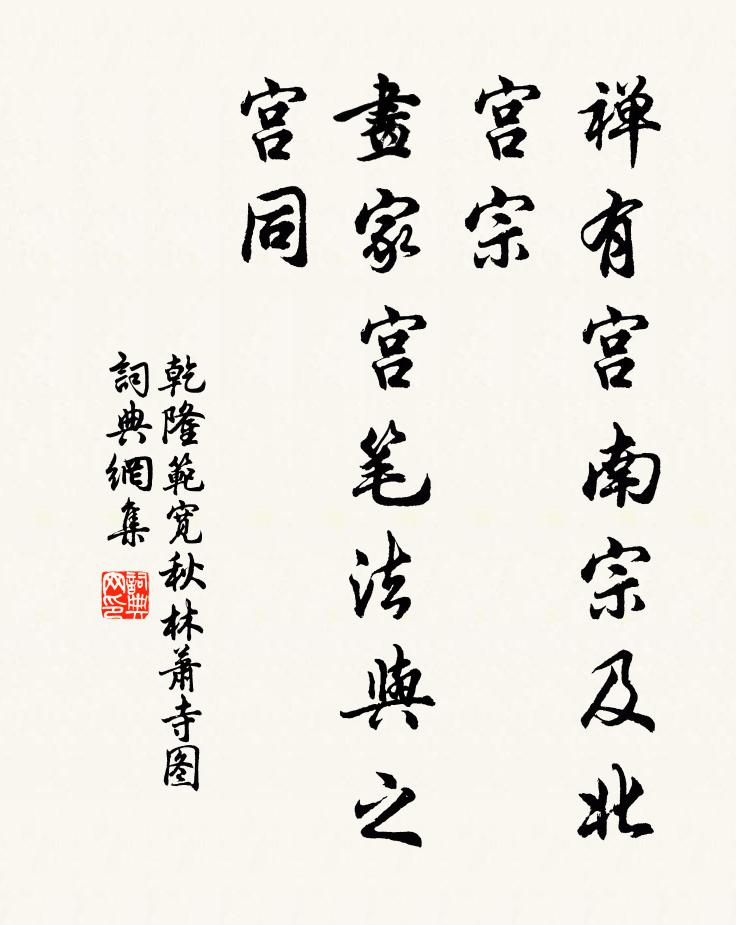 禅有宫南宗及北
宫宗
畫家宫笔法與之
宫同
乾隆範寬秋林蕭寺图
詞典網集
詞典网印